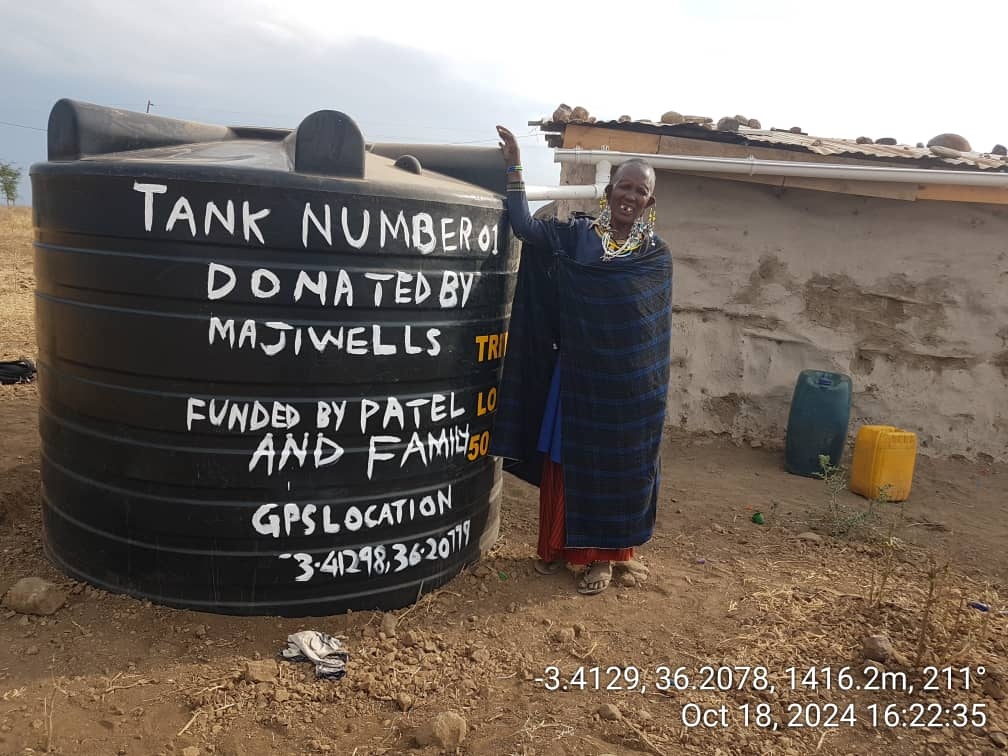 TANK NUMBER 01
DONATED BY
MAJIWELLS
FUNDED BY PATEL
AND FAMILY
GPS LOCATION
-3.41298,36.20779
LO
50
-3.4129, 36.2078, 1416.2m, 211°
Oct 18, 2024 16:22:35